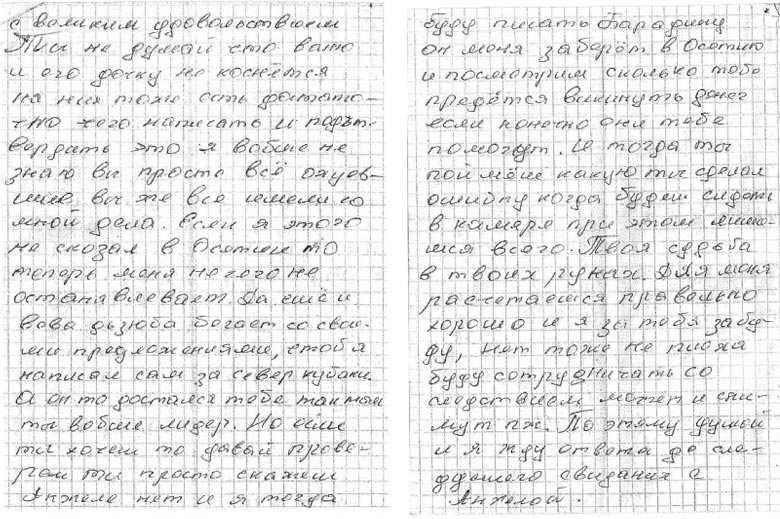 с великим удовольствием
Ты не думай сто вато
и его дочку не коснётся
на них тоже есть достато-
чно чего написать и подът-
вердать это я вобше не
знаю вы просто всё охуев-
шие, вы же все имели со
мной дела. Если я этого
не сказал в Осотии то
теперь меня нечего не
останавлевает. Да ешё и
вова дзюба богает со свои-
ми предложениями, стоб я
написал сам за север кубани.
А он то достался тебе так как
ты вобше лидер. Но если
ты хочеш то давай прове-
рем ты просто скажеш
Анжеле нет и я тогда
буду писать Гарадину
он меня заберёт в Осотию
и посмотрим сколько тебе
предётся выкинуть денег
если конечно они тебе
помогут. И тогда ты
поймёш какую ты сделал
ошибку когда будеш сидеть
в камере при этом
всего. Твоя судьба
в твоих руках. Для меня
расчетаешся правельно
хорошо и я за тебя забу-
ду, нет тоже не плоха
буду сотрудничать со
следствием может и сни-
мут пж. По этому думой
и я жду ответа до сле-
дующего свидания с
Анжелой.